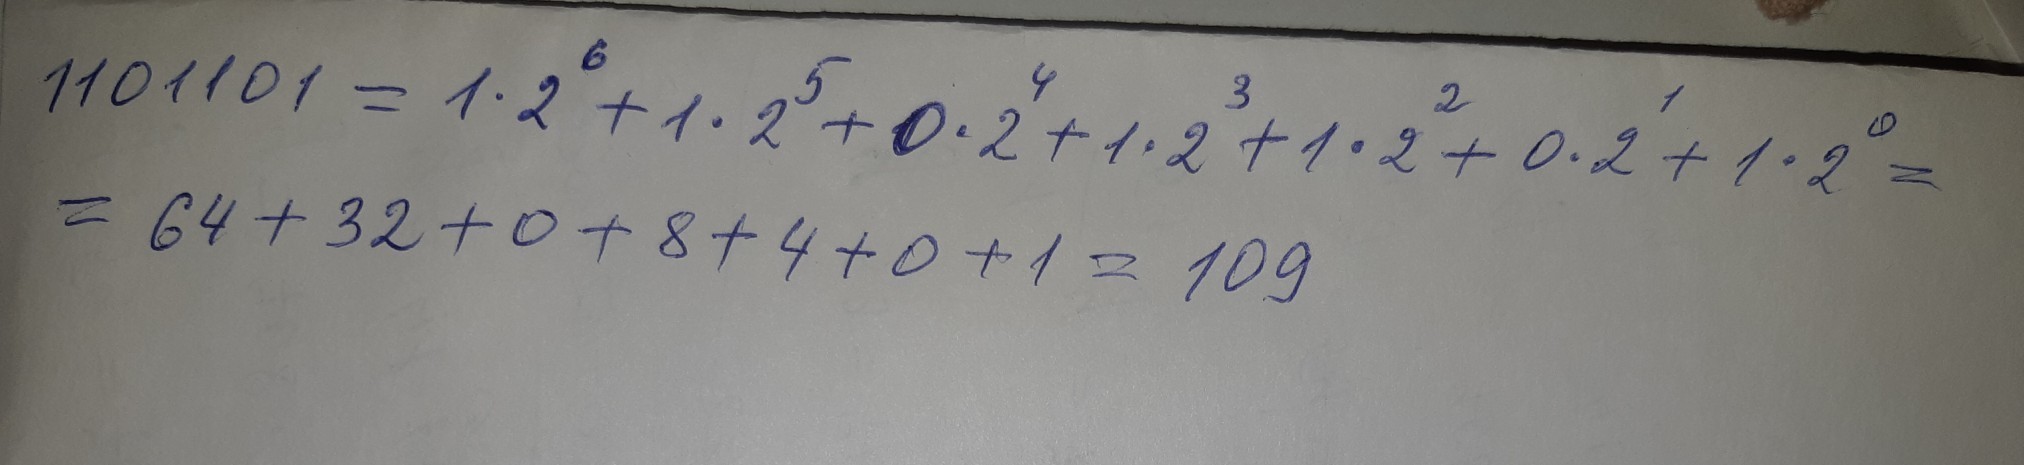 1101101 = 1·2⁶ + 1·2⁵ + 0·2⁴ + 1·2³ + 1·2² + 0·2¹ + 1·2⁰ =
= 64 + 32 + 0 + 8 + 4 + 0 + 1 = 109